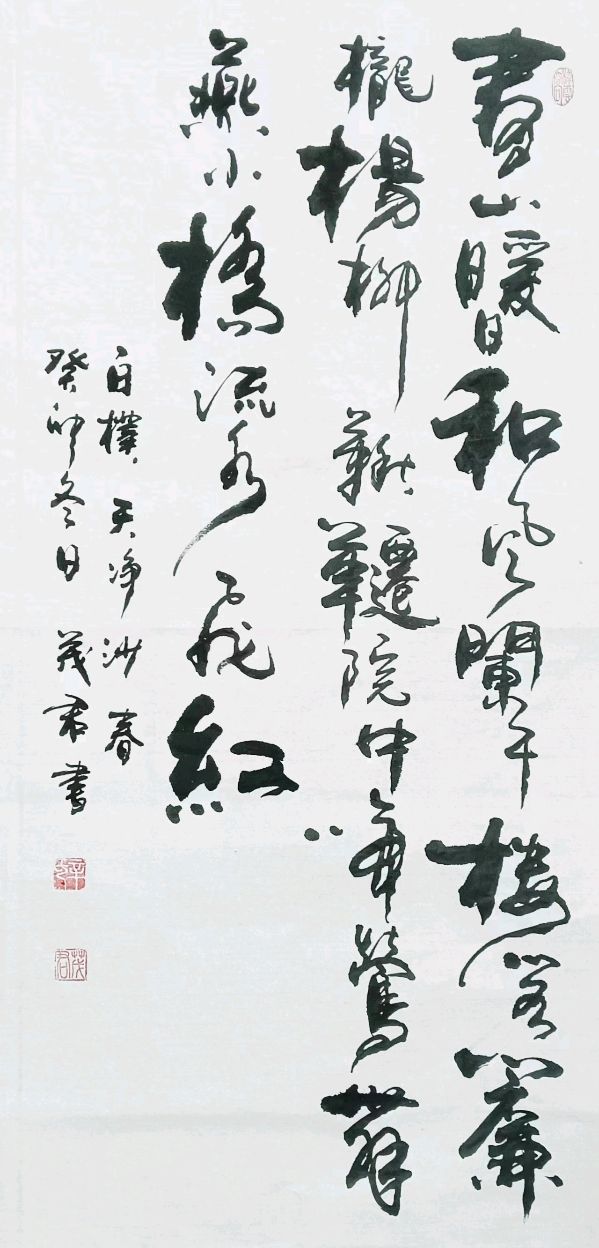 春山暖日和風闌干樓閣簾
櫳楊柳鞦韆院中啼鶯舞
燕小橋流水飛紅
白樸天淨沙春
癸卯冬日茂君書
茂君